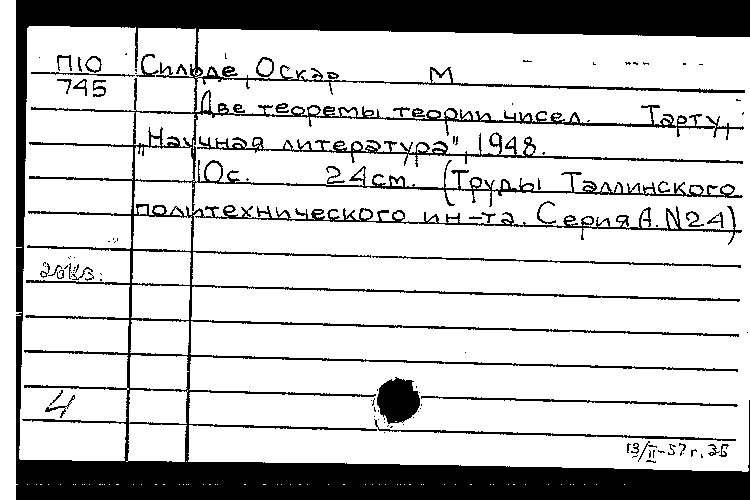 П10 Сильде, Оскар М
745
Две теоремы теории чисел. Тарту,
„Научная литература", 1948.
10с. 24см. (Труды Таллинского
политехнического ин-та. Серия А. N24)
4
13/II-57г.